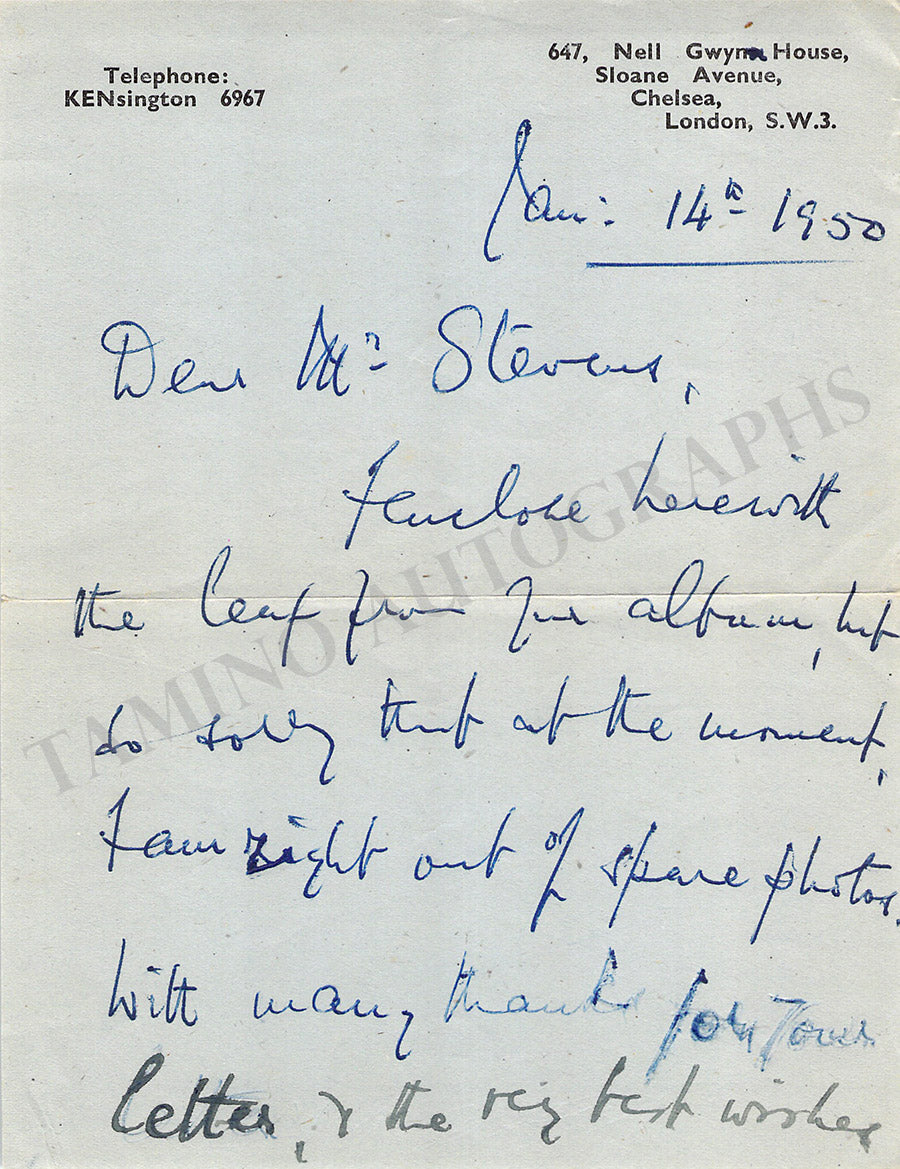 Telephone:
KENsington 6967
647, Nell Gwynn House,
Sloane Avenue,
Chelsea,
London, S.W.3.
Jan: 14th 1950
Dear Mr Stevens,
I enclose herewith
the leaf from your album, but
so sorry that at the moment,
I am right out of spare photos.
With many thanks for your
letter, & the very best wishes
TAMINO AUTOGRAPHS